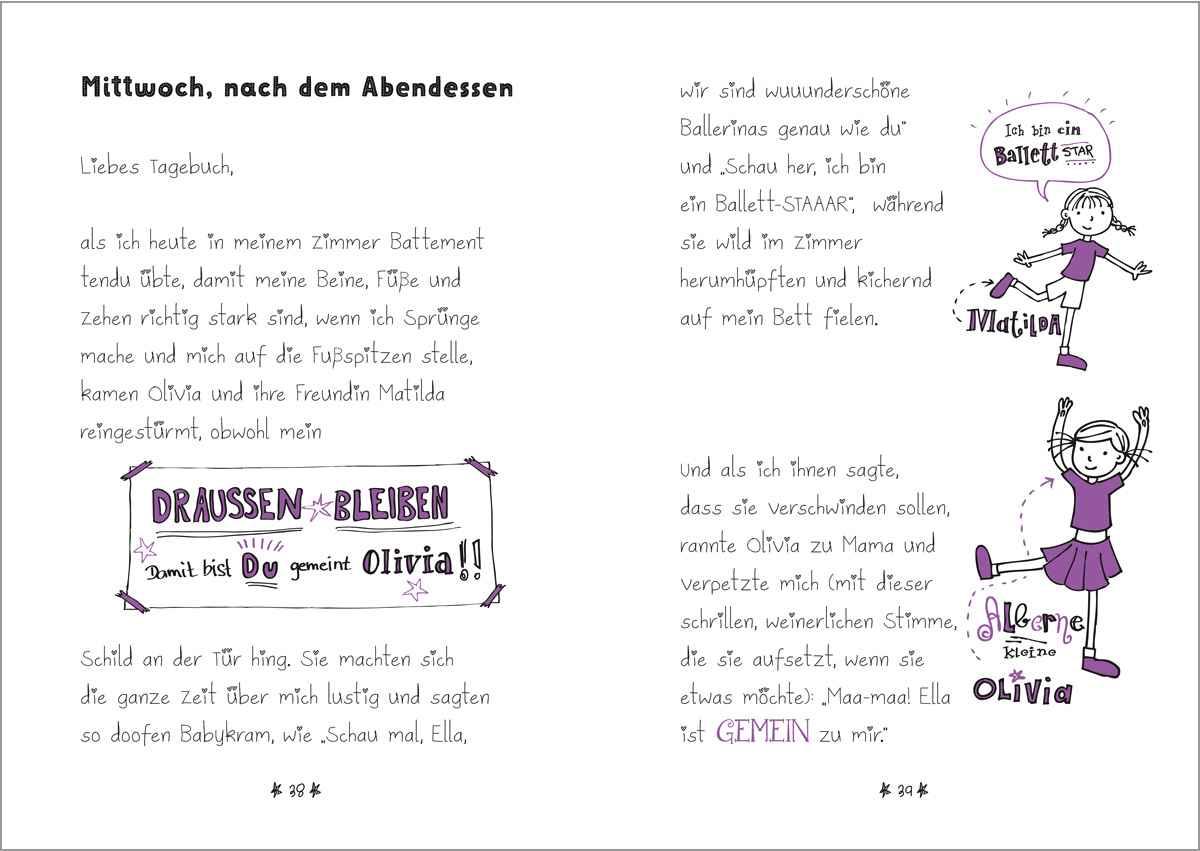 Mittwoch, nach dem Abendessen
Liebes Tagebuch,
als ich heute in meinem Zimmer Battement
tendu übte, damit meine Beine, Füße und
Zehen richtig stark sind, wenn ich Sprünge
mache und mich auf die Fußspitzen stelle,
kamen Olivia und ihre Freundin Matilda
reingestürmt, obwohl mein
DRAUSSEN BLEIBEN
Damit bist Du gemeint Olivia!!
Schild an der Tür hing. Sie machten sich
die ganze Zeit über mich lustig und sagten
so doofen Babykram, wie „Schau mal, Ella,
38
wir sind wuuunderschöne
Ballerinas genau wie du“
und „Schau her, ich bin
ein Ballett-STAAAR“, während
sie wild im Zimmer
herumhüpften und kichernd
auf mein Bett fielen.
Ich bin ein
Ballett STAR
Matilda
Und als ich ihnen sagte,
dass sie verschwinden sollen,
rannte Olivia zu Mama und
verpetzte mich (mit dieser
schrillen, weinerlichen Stimme,
die sie aufsetzt, wenn sie
etwas möchte): „Maa-maa! Ella
ist GEMEIN zu mir.“
Alberne
kleine
OLiVia
39